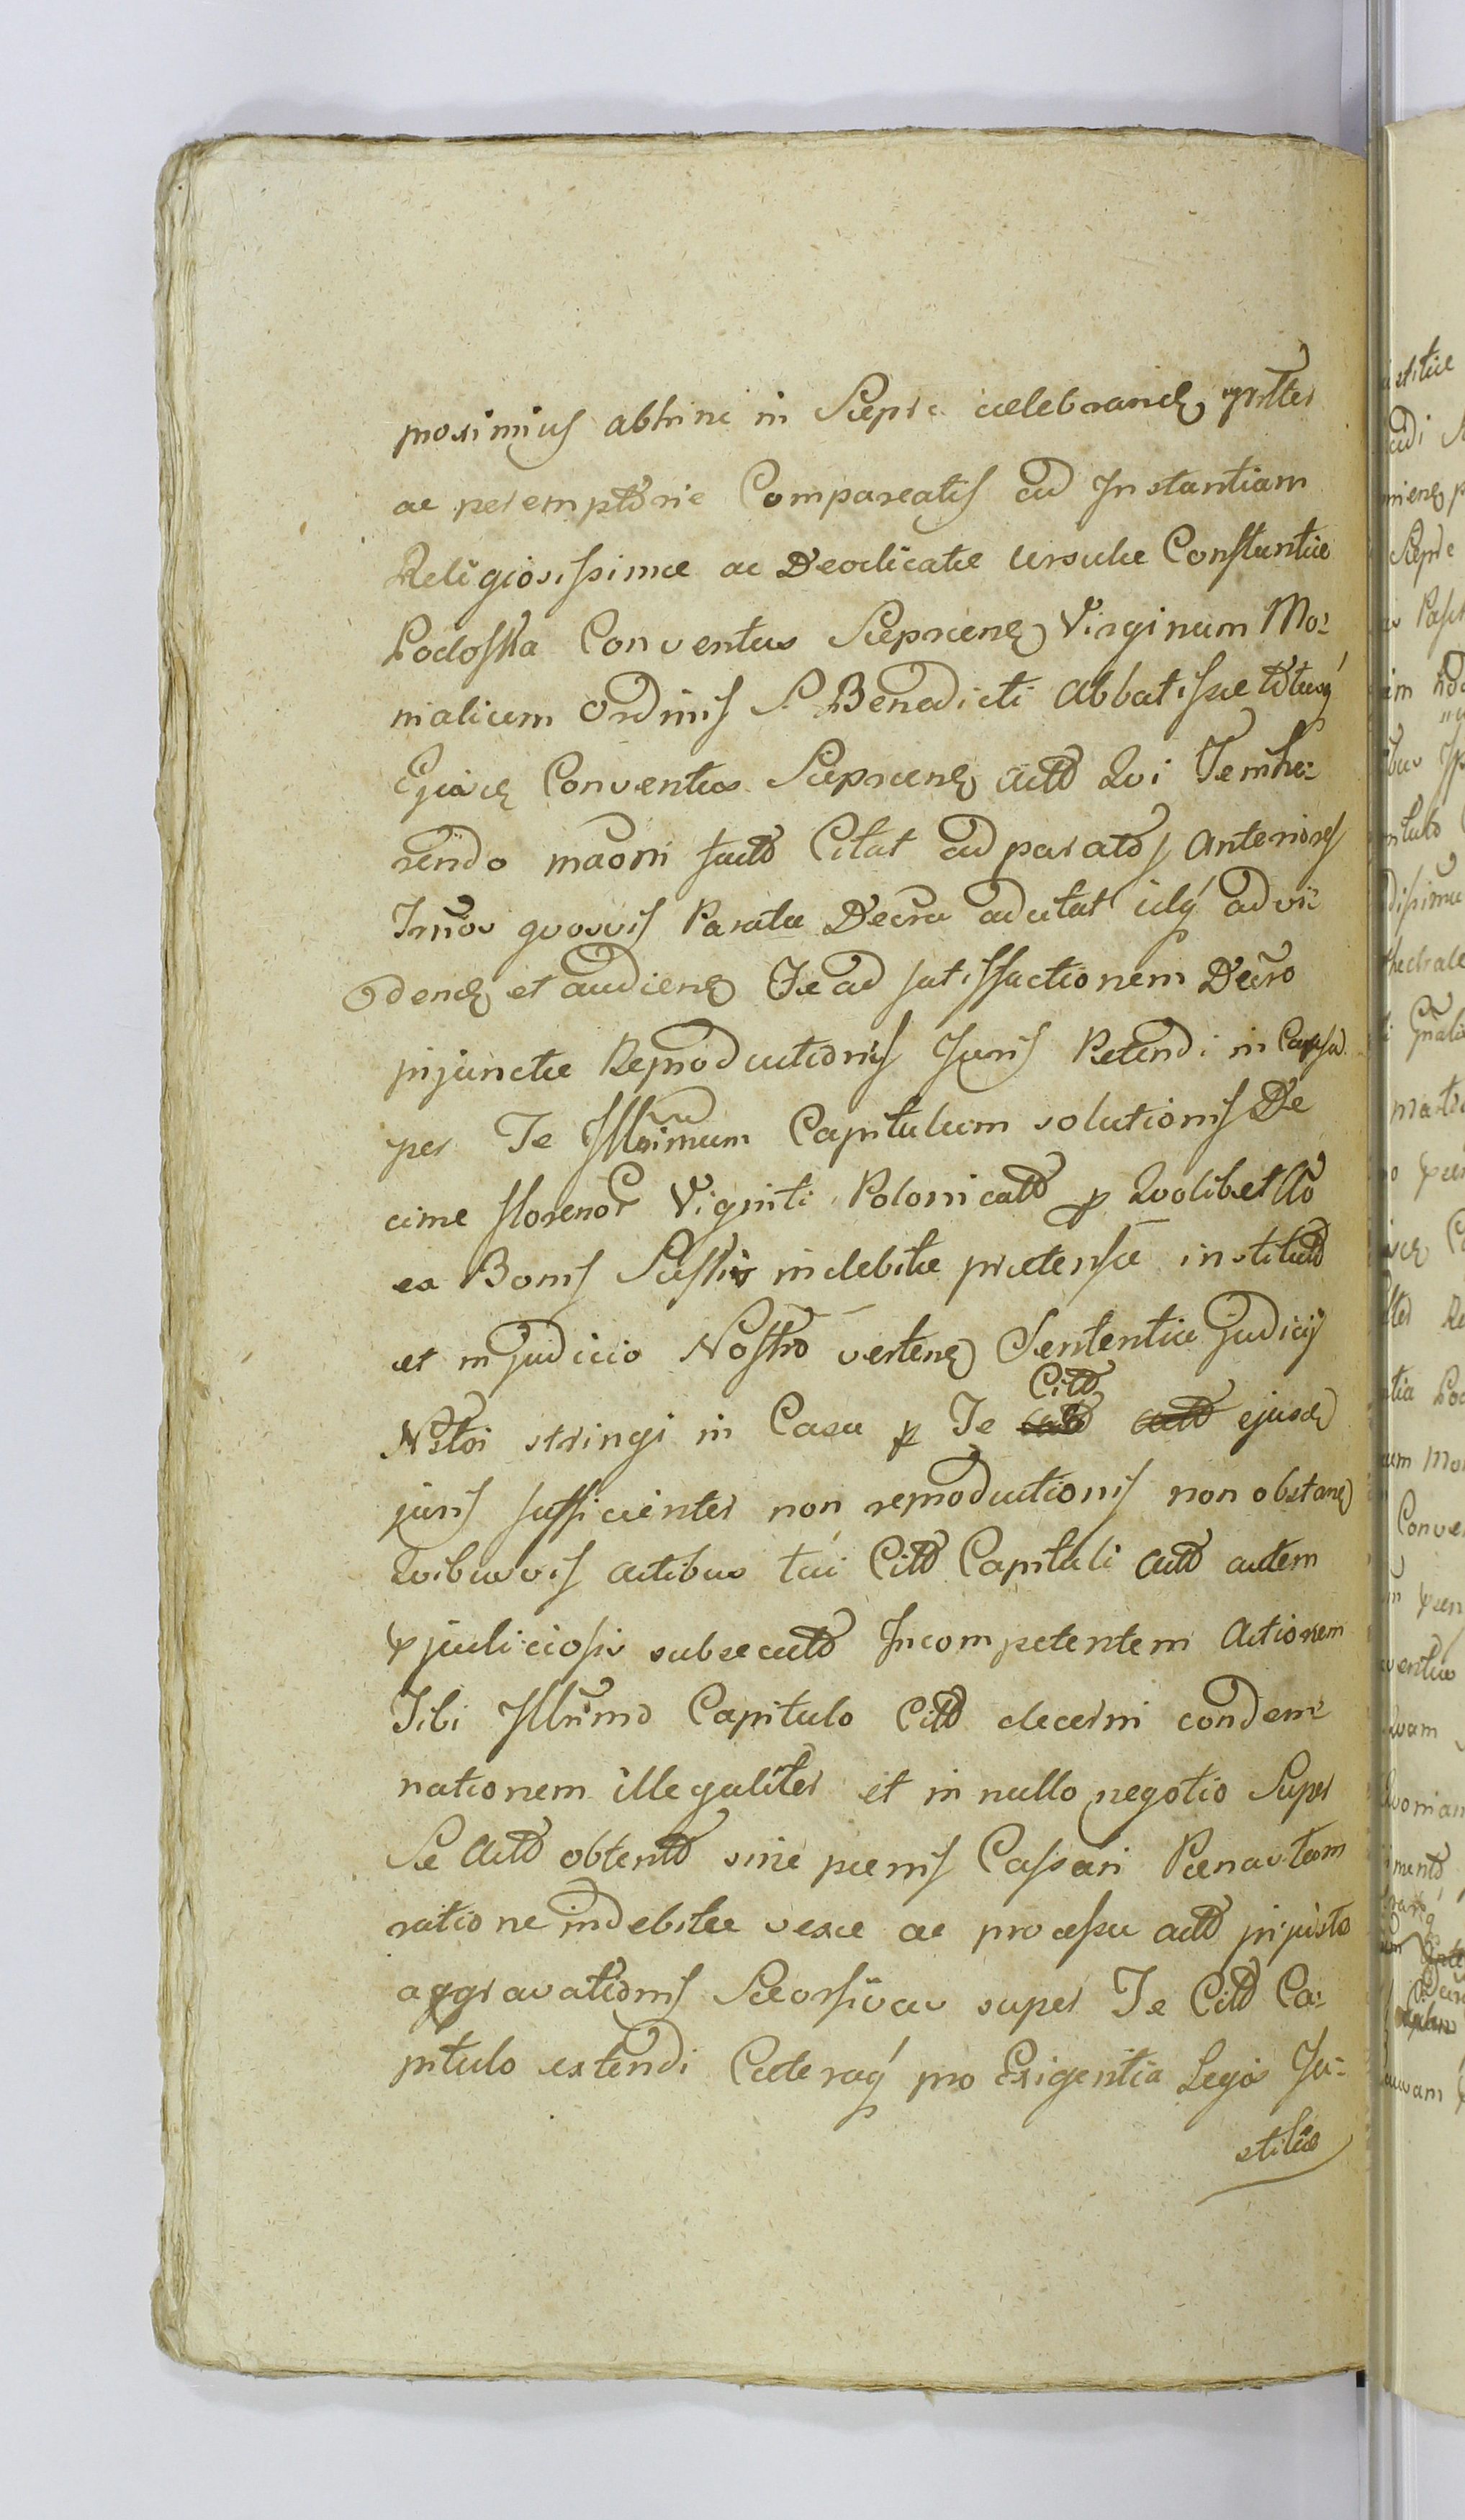 proximius abhinc in Sieprc celebrand prtter
ac peremptorie Compareatis ad Instantiam
Religiosissimae ac Deodicatae Ursulae Constantiae
Podoska Conventus Sieprcen Virginum Mo:
nialium Ordinis S. Benedicti Abbatissae totiusq
Ejusd Conventus Sieprcen Act Qui Te inhe:
rendo maoni facto Citat ad paratos Anteriores
Tmos quosvis Paratae Decra adcitat idq ad vi
dend et audiend Te ad satisfactionem Decro
injunctae Reproductionis Juris Petendi in Causa
per Te Illmum Capitulum solutionis De
cimae florenor Viginti Polonicat p Quolibet Ao
ex Bonis indebitae praetensae institut
et in Judicio Nostro verten Sententiae Judicij
Nstri stringi in Casu p Te Citt ejusd
juris sufficienter non reproductionis non obstan
Quibusvis actibus tui Citt Capituli Actt autem
pjudiciosis subsecutt Incompetentem Actionem
Tibi Illmmo Capitulo Citt decerni condem=
nationem illegaliter et in nullo negotio Super
Se Actt obtentt sine poenis Cassari Poenas tam
ratione indebitae vexae ac processu actt injusto
aggravationis Seorsivas super Te Citt Ca:
pitulo extendi Caeteraq pro Exigentia Legis Ju=
stitiae